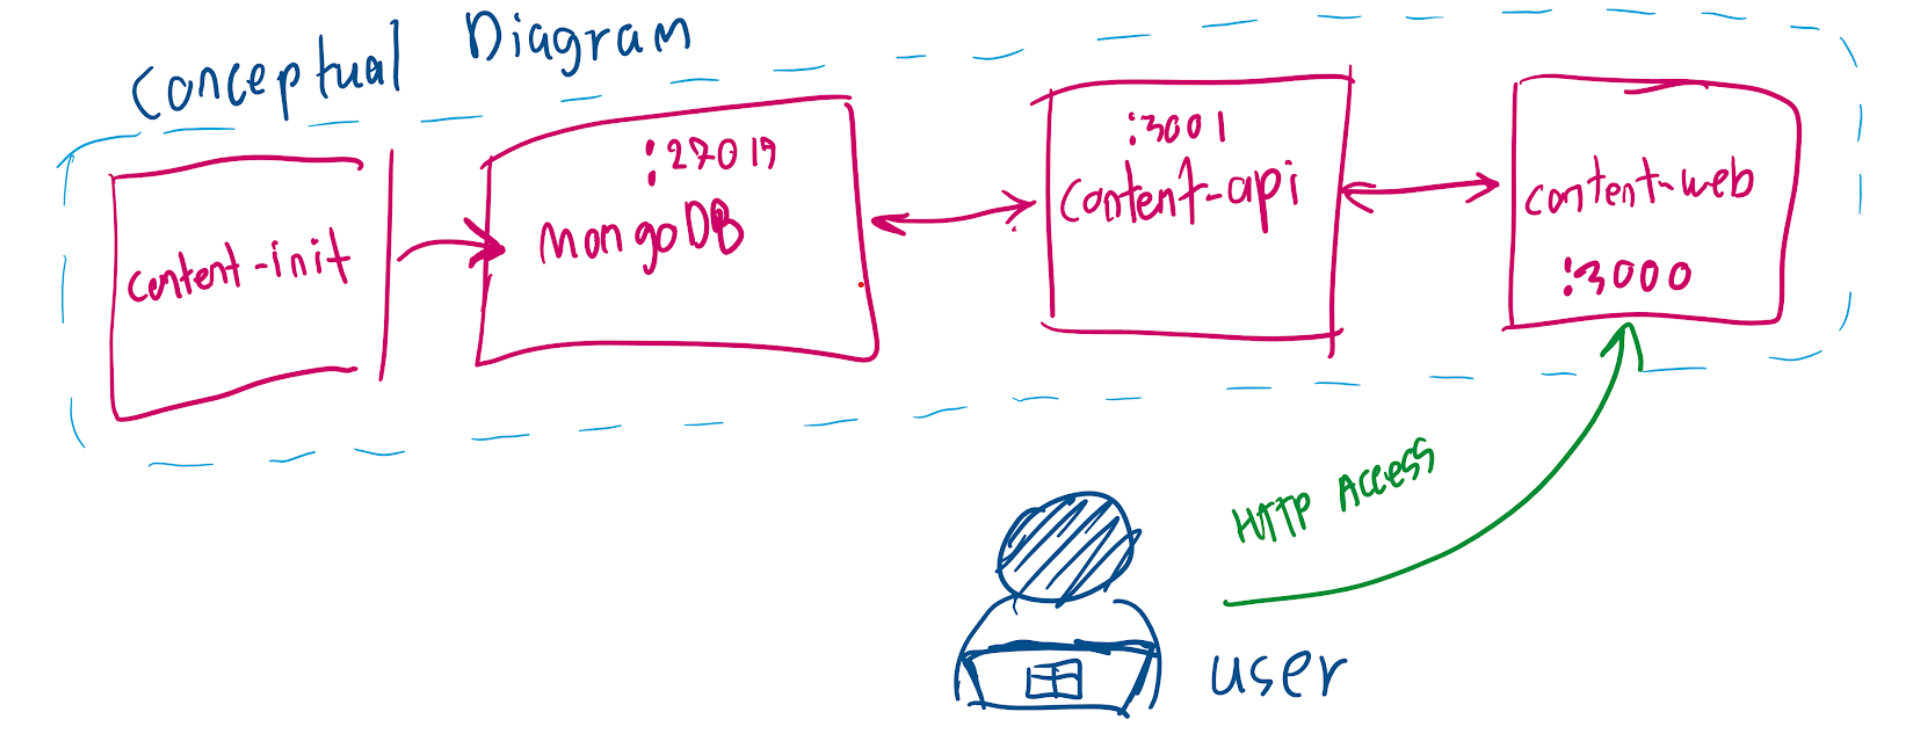 Conceptual Diagram
content-init
:27017
mongoDB
:3001
content-api
content-web
:3000
HTTP Access
user